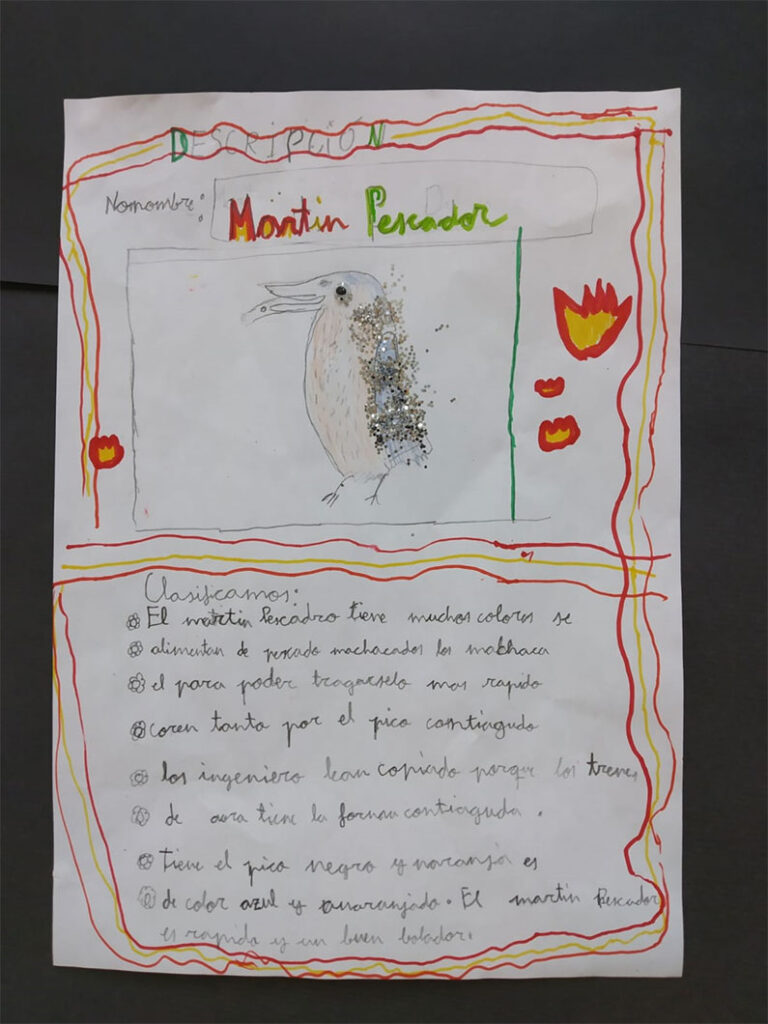 DESCRIPCIÓN
Nomombre:
Martin Pescador
Clasificamos:
El martin Pescadro tiene muchos colores se
alimentan de pescado machacados los makhaca
el para poder tragarselo mas rapido
coren tanto por el pico contiagudo
los ingeniero han copiado porque los trenes
de aora tiene la forma contiaguda.
Tiene el pico negro y naranja es
de color azul y anaranjado. El martin Pescador
es rapida y un buen bolador.